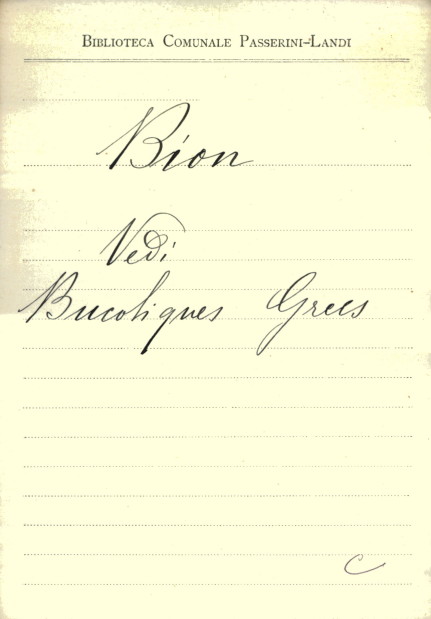 Biblioteca Comunale Passerini-Landi
Bion
Vedi
Bucoliques Grecs
C